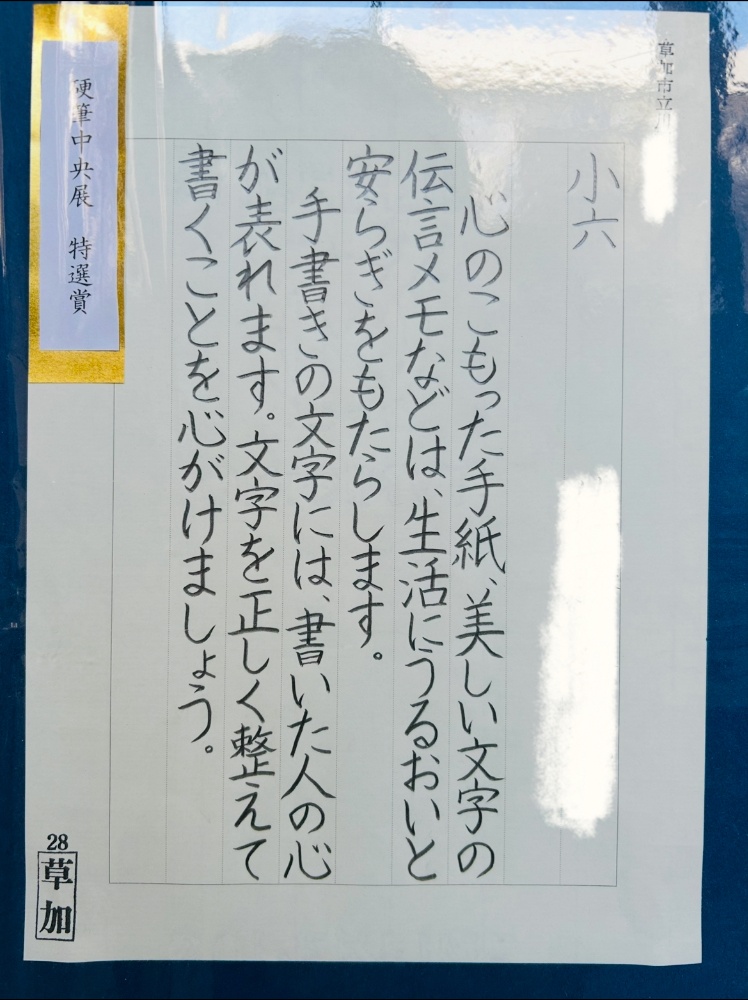 草加市立
小六
心のこもった手紙、美しい文字の
伝言メモなどは、生活にうるおいと
安らぎをもたらします。
手書きの文字には、書いた人の心
が表れます。文字を正しく整えて
書くことを心がけましょう。
硬筆中央展 特選賞
28
草加